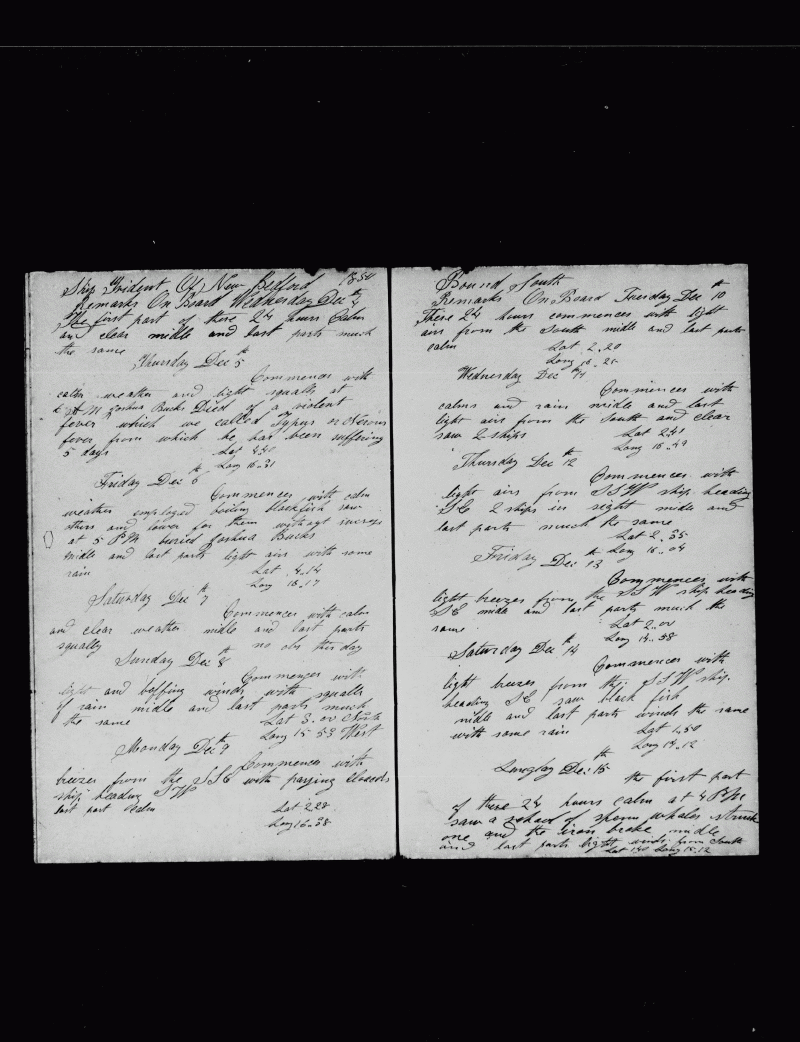 Ship Trident Of New Bedford 1850
Remarks On Board Wednesday Dec th 4
The first part of these 24 hours Calm
and clear middle and last parts much
the same
Thursday Dec th 5
Commences with
calm weather and light squalls at
AM Joshua Bucks Died of a violent
fever which we called Typus or Nerious
fever from which he has been suffering
5 days Lat 4.50
Long 16.31
Friday Dec th 6
Commences with calm
weather employed boiling blackfish saw
others and lower for them without success
at 5 PM buried Joshua Bucks
middle and last parts light airs with some
rain Lat 4.14
Long 16.17
Saturday Dec th 7
Commences with calm
and clear weather midle and last parts
squally no obs this day
Sunday Dec th 8
Commences with
light and baffing winds with squalls
of rain midle and last parts much
the same Lat 3.00 North
Long 15.53 West
Monday Dec th 9
Commences with
breezes from the SSE with passing clouds
ship heading SW
last part calm Lat 2.28
Long 16.38
Bound South
Remarks On Board Tuesday Dec th 10
These 24 hours commences with light
airs from the South midle and last parts
calm Lat 2.20
Long 16.25
Wednesday Dec th 11
Commences with
calms and rain midle and last
light airs from the South and clear
saw 2 ships Lat 2.41
Long 16.49
Thursday Dec th 12
Commences with
light airs from SSW ship heading
SE 2 ships in sight midle and
last parts much the same
Lat 2.35
Long 16.04
Friday Dec th 13
Commences with
light breezes from the SSW ship heading
SE midle and last parts much the
same Lat 2.00
Long 14.58
Saturday Dec th 14
Commences with
light breezes from the SSW ship
heading SE saw black fish
midle and last parts winds the same
with some rain Lat 1.50
Long 14.12
Sunday Dec th 15
the first part
of these 24 hours calm at 4 PM
saw a school of sperm whales struck
one and the iron broke midle
and last parts light winds from South
Lat 1.40 Long 15.12